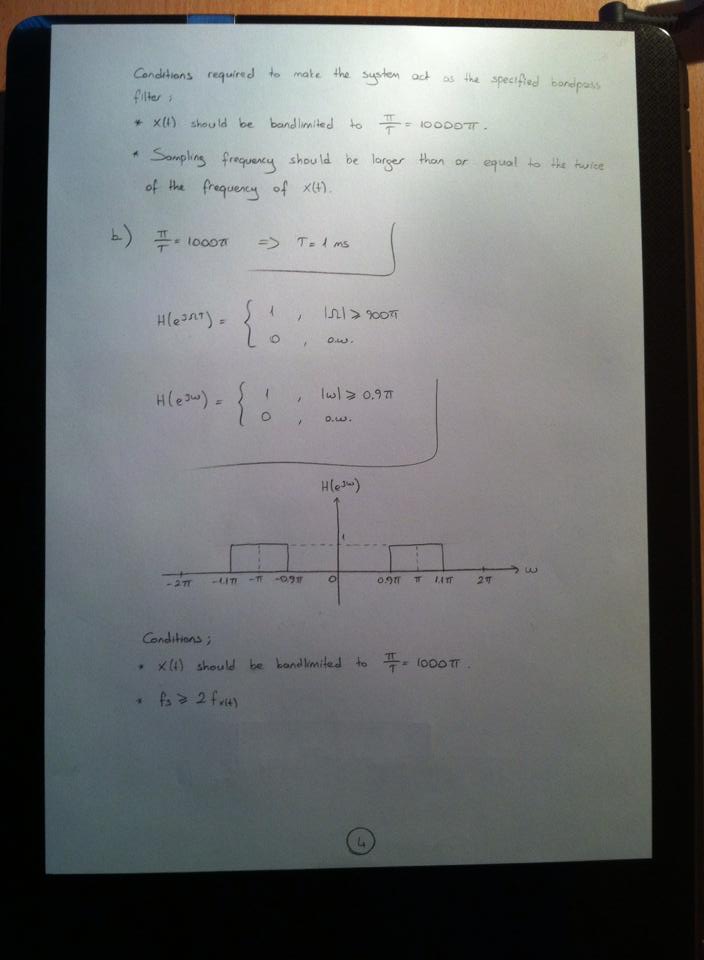 Conditions required to make the system act as the specified bandpass
filter;
* x(t) should be bandlimited to π/T = 10000π.
* Sampling frequency should be larger than or equal to the twice
of the frequency of x(t).
b) π/T = 1000π => T = 1 ms
H(e^jΩT) = { 1 , |Ω| ≥ 900π
0 , o.w.
H(e^jω) = { 1 , |ω| ≥ 0.9π
0 , o.w.
H(e^jω)
1
-2π -1.1π -π -0.9π 0 0.9π π 1.1π 2π ω
Conditions;
* x(t) should be bandlimited to π/T = 1000π.
* fs ≥ 2 fx(t)
4